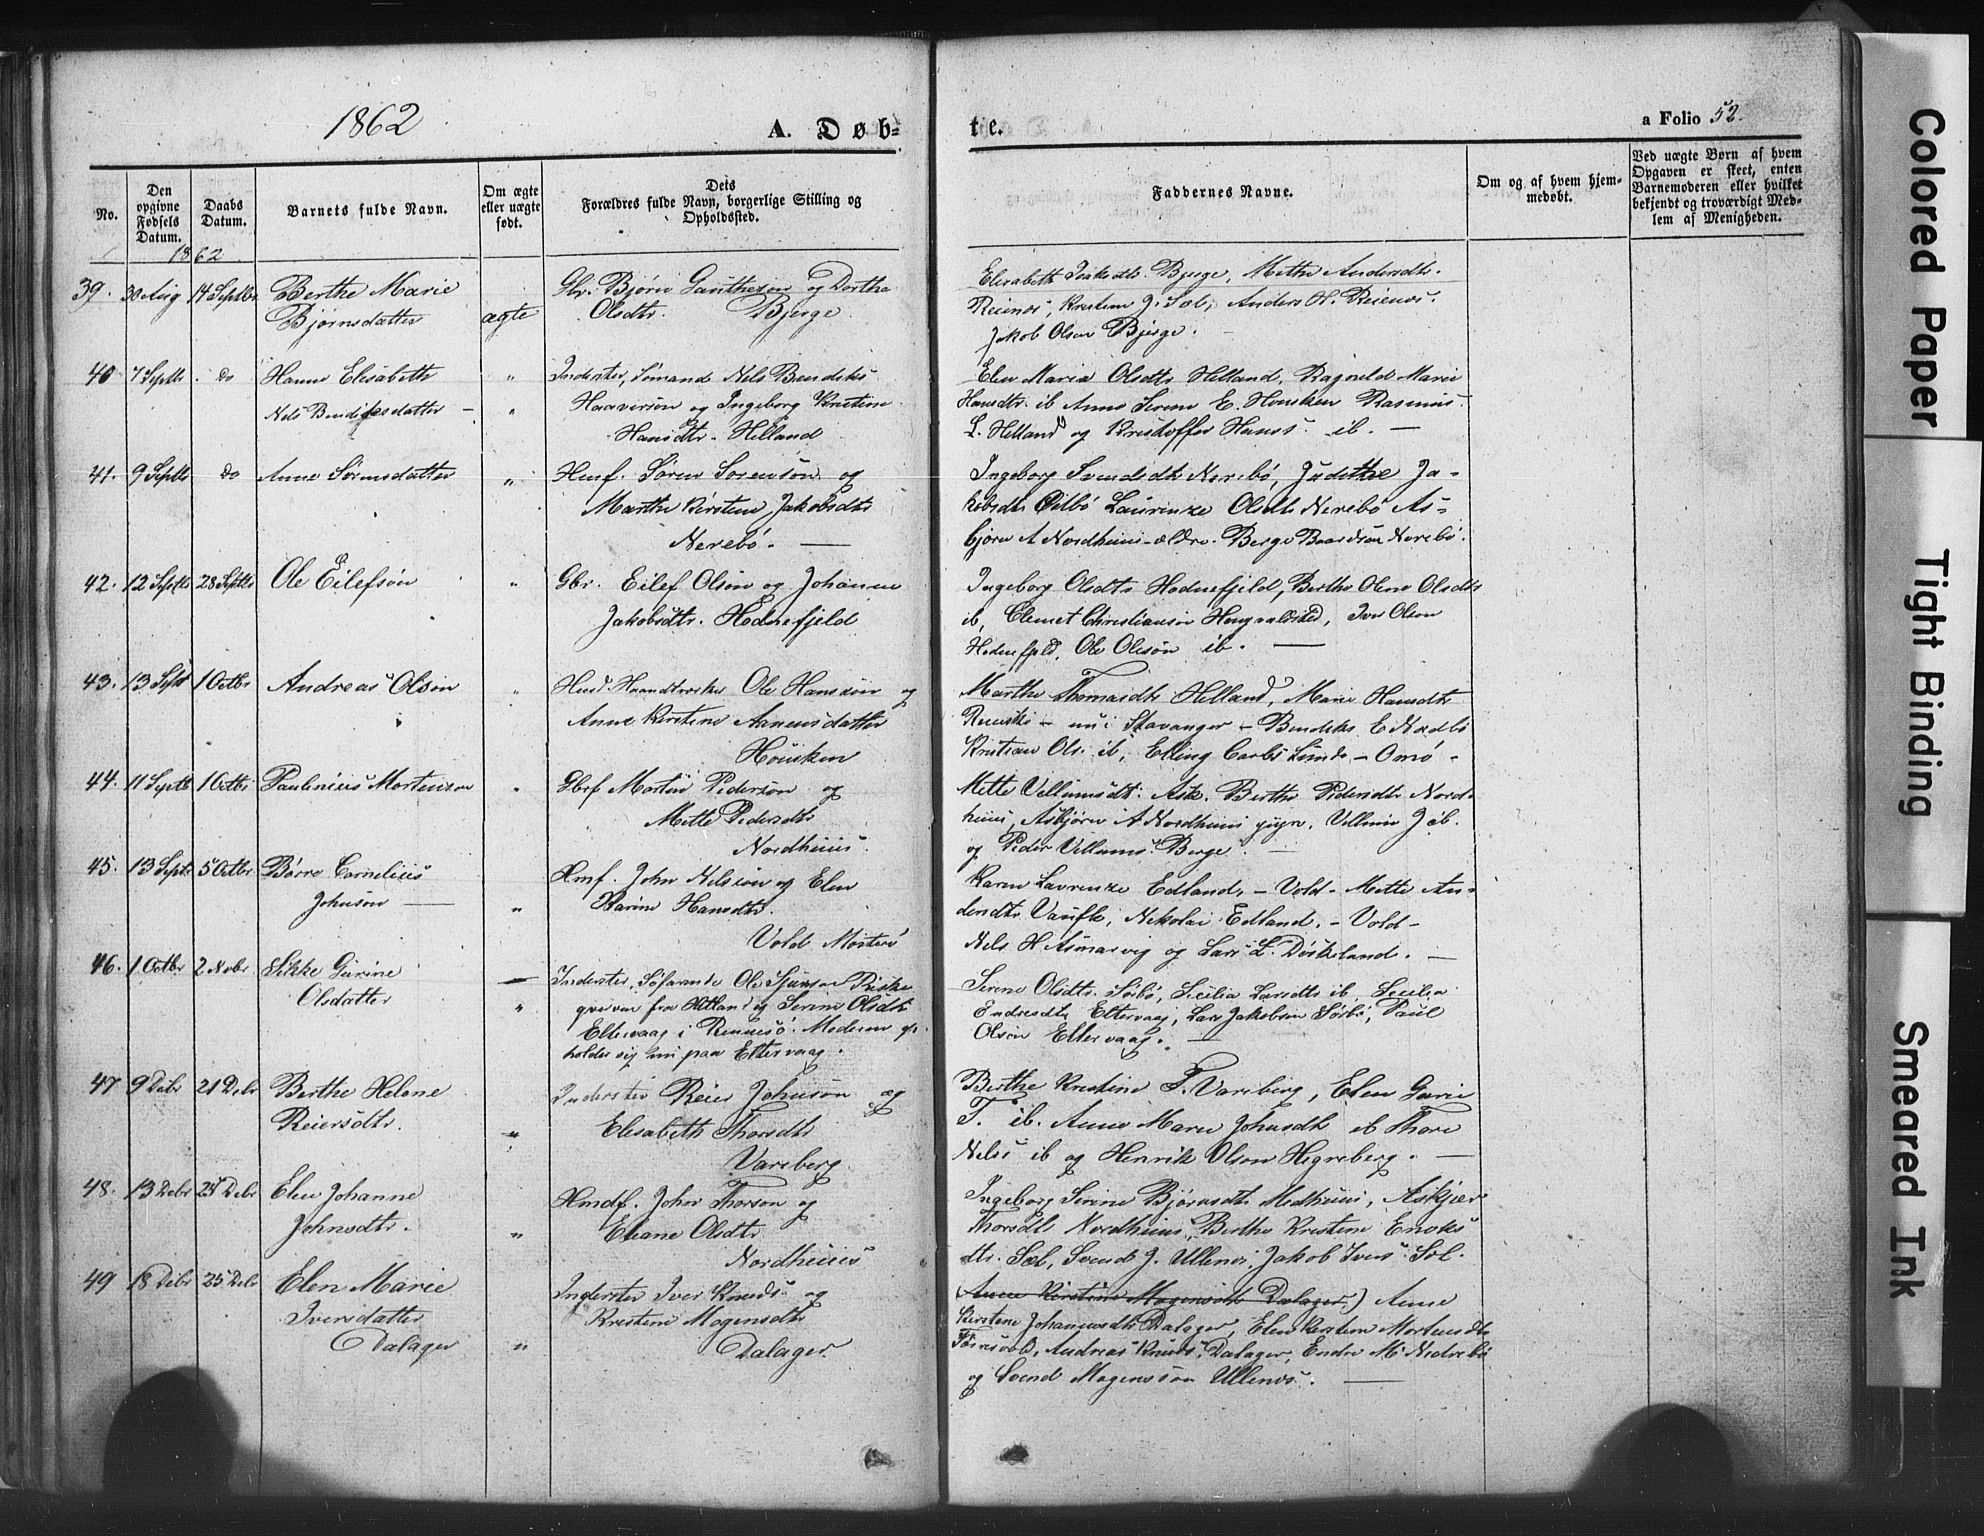 1862
A. Døb-
te.
a Folio 52.
No.
Den opgivne Fødsels Datum.
Daabs Datum.
Barnets fulde Navn.
Om ægte eller uægte født.
Dets Forældres fulde Navn, borgerlige Stilling og Opholdssted.
Faddernes Navne.
Om og af hvem hjemmedøbt.
Ved uægte Børn af hvem Opgaven er skeet, enten Barnemoderen eller hvilket bekjendt og troværdigt Medlem af Menigheden.
1862
39. 30 Aug 14 Septbr Berthe Marie
Bjørnsdatter ægte
Gbr. Bjørn Gauthesen og Dorthe
Olsdtr. Bjerge
Elisabeth Jakobdtr. Bjerge, Mette Andersdtr.
Reienes, Kristen J. Sæl, Anders H. Reienes.
Jakob Olson Bjerge.
40 7 Septbr. Do Hanne Elisabeth
Nels Bendiksdatter
Inderster, Sømand Nels Bendiks
Haaverson og Ingeborg Kristine
Hansdtr. Helland
Elen Maria Olsdtr Helland, Ragnilde Marie
Hansdtr. ib Anne Serene E. Housken Rasmus
L. Helland og Kristoffer Hans. ib. —
41. 9 Septbr Do Anne Sørensdatter "
Hmf. Søren Sørenson og
Marthe Kirstine Jakobsdtr
Nerebø. —
Ingeborg Svendsdtr Nerebø, Judithe Ja-
kobsdtr Østbø Laurenze Olsdtr Nerebø As-
bjørn A Nordheim ældre. Berge Baardson Nerebø.
42. 12 Septbr 28 Septbr Ole Eilefsøn "
Gbr. Eilef Olson og Johanne
Jakobsdtr. Hodnefjeld
Ingeborg Olsdtr Hodnefjeld, Berthe Olene Olsdtr
ib, Clemet Christianson Hougvaldsted, Iver Olson
Hodnefjeld, Ole Oleson ib. —
43. 13 Sept 1 Octbr Andreas Olson "
Husm. Haandverker Ole Hanssøn og
Anne Kirstine Aanensdatter
Housken
Marthe Thomasdtr Helland, Marie Hansdtr
— nu i Stavanger – Bendiks E Nordbø
Kristian Ols. ib, Elling Carls Lunde – Omø –
44. 11 Septb 1 Octbr Paulenius Mortenson "
Gbrf Morten Pederson og
Mette Pedersdtr
Nordheim.
Mette Villumsdtr. Ask. Berthe Pedersdtr Nord-
heim, Asbjørn A Nordheim yngre, Villum J. ib.
og Peder Villums. Berge. —
45. 13 Septr 5 Octbr Børre Cornelius
Johnson — "
Hmf. John Nelsson og Elen
Karine Hansdtr.
Vold Mosterø
Karen Lavrenze Edland, – Vold – Mette An-
dersdtr. , Nekolai Edland. – Vold –
Nels H Asmarvig og Lars L. Døskeland. —
46. 1 Octbr 2 Novbr Sikke Gurine
Olsdatter "
Inderster, Søfarende Ole Sjurson
fra Hetland og Serine Olsdtr
Eltervaag i Rennesø. Moderen op-
holder sig nu paa Eltervaag.
Serene Olsdtr. Sørbø, Secilia Larsdtr ib, Secilia
Endresdtr Eltervaag, Lars Jakobson Sørbø, Paul
Olson Eltervaag. —
47 9 Debr 21 Debr Berthe Helene
Reiersdtr. "
Inderster Reier Johnson og
Elisabeth Thorsdtr
Varsberg
Berthe Kristine T. Varsberg, Elen Gurie
T. ib. Anne Marie Johnsdtr ib Thore
Nels. ib og Henrik Olson Hegreberg. —
48. 13 Debr 25 Debr Elen Johanne
Johnsdtr. "
Hmdf. John Thorson og
Eliane Olsdtr
Nordheim
Ingeborg Serine Bjørnsdtr. Medheim, Askjær
Thorsdtr Nordheim, Berthe Kristine Enoks
dtr. Sæl, Svend J. Ullenes, Jakob Ivers. Sæl.
49 18 Debr 25 Debr Elen Marie
Iversdatter
Dalager "
Inderster Iver Knuds. og
Kristine Mogensdtr
Dalager.
Anne Kirstine Mogensdtr Dalager.) Anne
Kirstine Johannesdtr Dalager, Elen Kirstine Mortensdtr
, Andreas Knuds. Dalager, Endre M. Nedrebø
og Svend Mogensson Ullenes. —
Colored Paper
Tight Binding
Smeared Ink